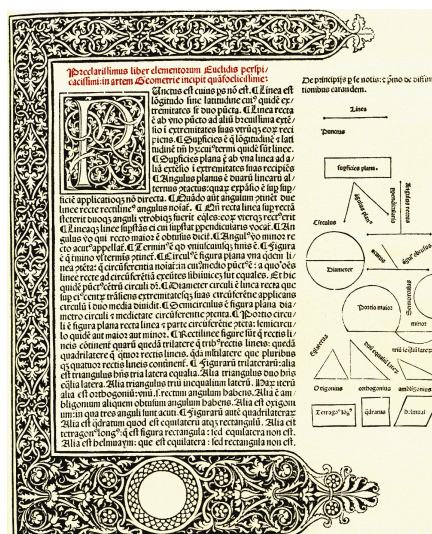 Preclarissimus liber elementorum Euclidis perspi/
cacissimi: in artem Geometrie incipit quāfoelicissime:
PUnctus est cuius ps nō est. ¶ Linea est
lōgitudo sine latitudine cuiꝰ quidē ex/
tremitates st duo pūcta. ¶ Linea recta
ē ab vno pūcto ad aliū breuissima extē/
sio ī extremitates suas vtrūqꝫ eorū reci
piens. ¶ Supficies ē q̄ lōgitudinē ⁊ lati
tudinē tm̄ hꝫ: cuiꝰ termi quidē sūt linee.
¶ Supficies plana ē ab vna linea ad a/
liā extēsio ī extremitates suas recipiēs
¶ Angulus planus ē duarū linearū al/
ternus ptactus: quarū expāsio ē sup sup/
ficiē applicatioqꝫ nō directa. ¶ Quādo aūt angulum ptinēt due
linee recte rectilineꝰ angulus noiat̄. ¶ Qn̄ recta linea sup rectā
steterit duoqꝫ anguli vtrobiqꝫ fuerit eq̄les: eorū vterqꝫ rectꝰ erit
¶ Lineaqꝫ linee supstās ei cui supstat ppendicularis vocat̄. ¶ An
gulus vo qui recto maior ē obtusus dicit̄. ¶ Angulꝰ vo minor re
cto acutꝰ appellat̄. ¶ Terminꝰ ē qd vniuscuiusqꝫ finis ē. ¶ Figura
ē q̄ tmino vl termis ptinet̄. ¶ Circulꝰ ē figura plana vna qdem li/
nea ptēta: q̄ circūferentia noiat̄: in cuiꝰ medio pūctꝰ ē: a quo oēs
linee recte ad circūferētiā exeūtes sibiinuicē sūt equales. Et hic
quidē pūctꝰ cētrū circuli dr̄. ¶ Diameter circuli ē linea recta que
sup eiꝰ centꝝ trāsiens extremitatesqꝫ suas circūferētie applicans
circulū i duo media diuidit. ¶ Semicirculus ē figura plana dia/
metro circuli ⁊ medietate circūferentie ptenta. ¶ Portio circu/
li ē figura plana recta linea ⁊ parte circūferētie ptēta: semicircu/
lo quidē aut maior aut minor. ¶ Rectilinee figure sūt q̄ rectis li/
neis cōtinent̄ quarū quedā trilatere q̄ tribꝰ rectis lineis: quedā
quadrilatere q̄ qtuor rectis lineis. qdā mltilatere que pluribus
qꝫ quatuor rectis lineis continent̄. ¶ Figurarū trilaterarū: alia
est triangulus hn̄s tria latera equalia. Alia triangulus duo hn̄s
eq̄lia latera. Alia triangulus triū inequalium laterū. Harū iterū
alia est orthogoniū: vnū .s. rectum angulum habens. Alia ē am/
bligonium aliquem obtusum angulum habens. Alia est oxigoni
um: in qua tres anguli sunt acuti. ¶ Figurarū aūt quadrilaterarū
Alia est qdratum quod est equilaterū atqꝫ rectangulū. Alia est
tetragonꝰ longꝰ: q̄ est figura rectangula: sed equilatera non est.
Alia est helmuaym: que est equilatera: sed rectangula non est.
De principijs p se notis: ⁊ pmo de diffini
tionibus earandem.
Linea
Punctus
supficies plana.
Circulus
Diameter
Portio maior
minor
Oxigonius
orthogonius
ambligonius
Tetragonꝰ longꝰ
qdratus